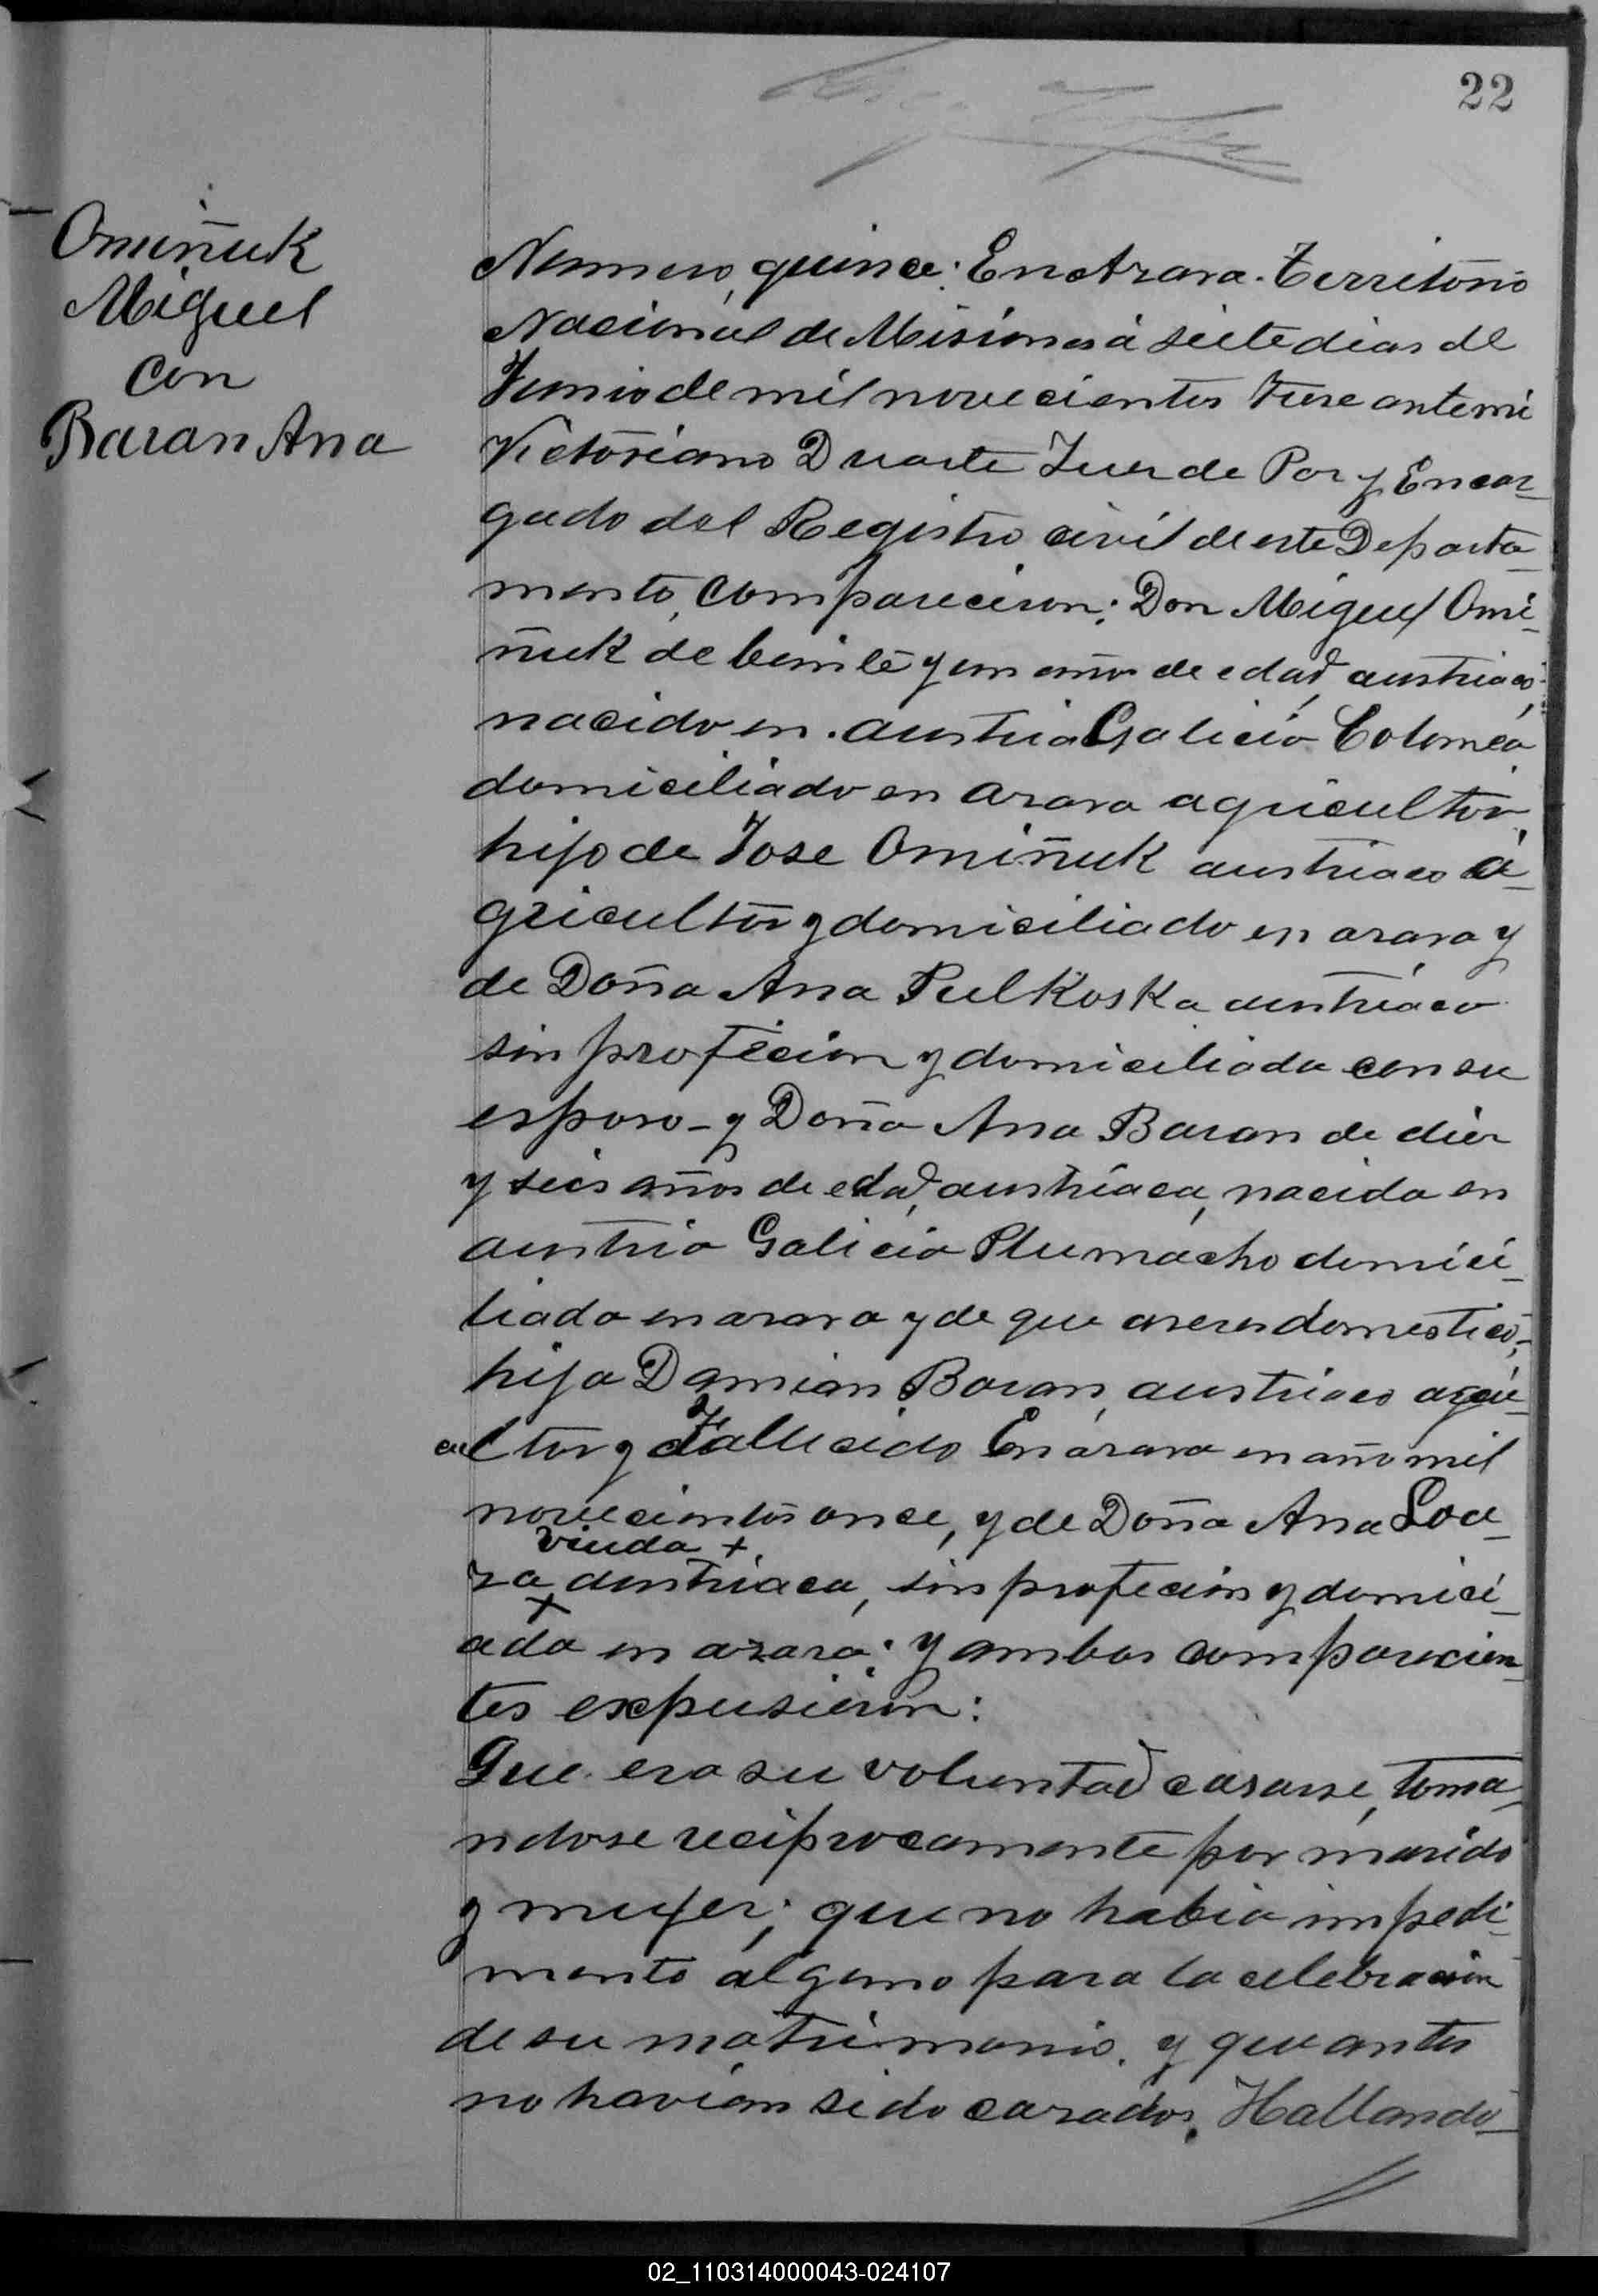 22
Omiñuk
Miguel
con
Baran Ana
Numero, quince: En Azara. Territorio
Nacional de Misiones á siete dias de
Junio de mil novecientos trese ante mi
Victoriano Duarte Juez de Paz y Encar_
gado del Registro civil de este Departa_
mento, comparecieron: Don Miguel Omi_
ñuk de beinte y un años de edad, austriaco,
nacido en. austria Galicia Colomea
domiciliado en azara agricultor,
hijo de Jose Omiñuk austriaco a_
gricultor y domiciliado en azara y
de Doña Ana Pulkoska austriaca
sin profecion y domiciliada con su
esposo_ y Doña Ana Baran de diez
y seis años de edad, austriaca, nacida en
austria Galicia Plumacho domici_
liada en azara y de que aseres domestico,
hija Damian Baran, austriaco agri_
cultor y Fallecido En azara en año mil
novecientos onse, y de Doña Ana Loa_
viuda +
za austriaca, sin profecion y domici_
+
ada en azara: y ambos comparecien_
tes expusieron:
Que era su voluntad casarse, toma_
ndose reciprocamente por marido
y mujer; que no habia impedi_
mento alguno para la celebracion
de su matrimonio. y que antes
no havian sido casados. Hallando_
02_110314000043-024107